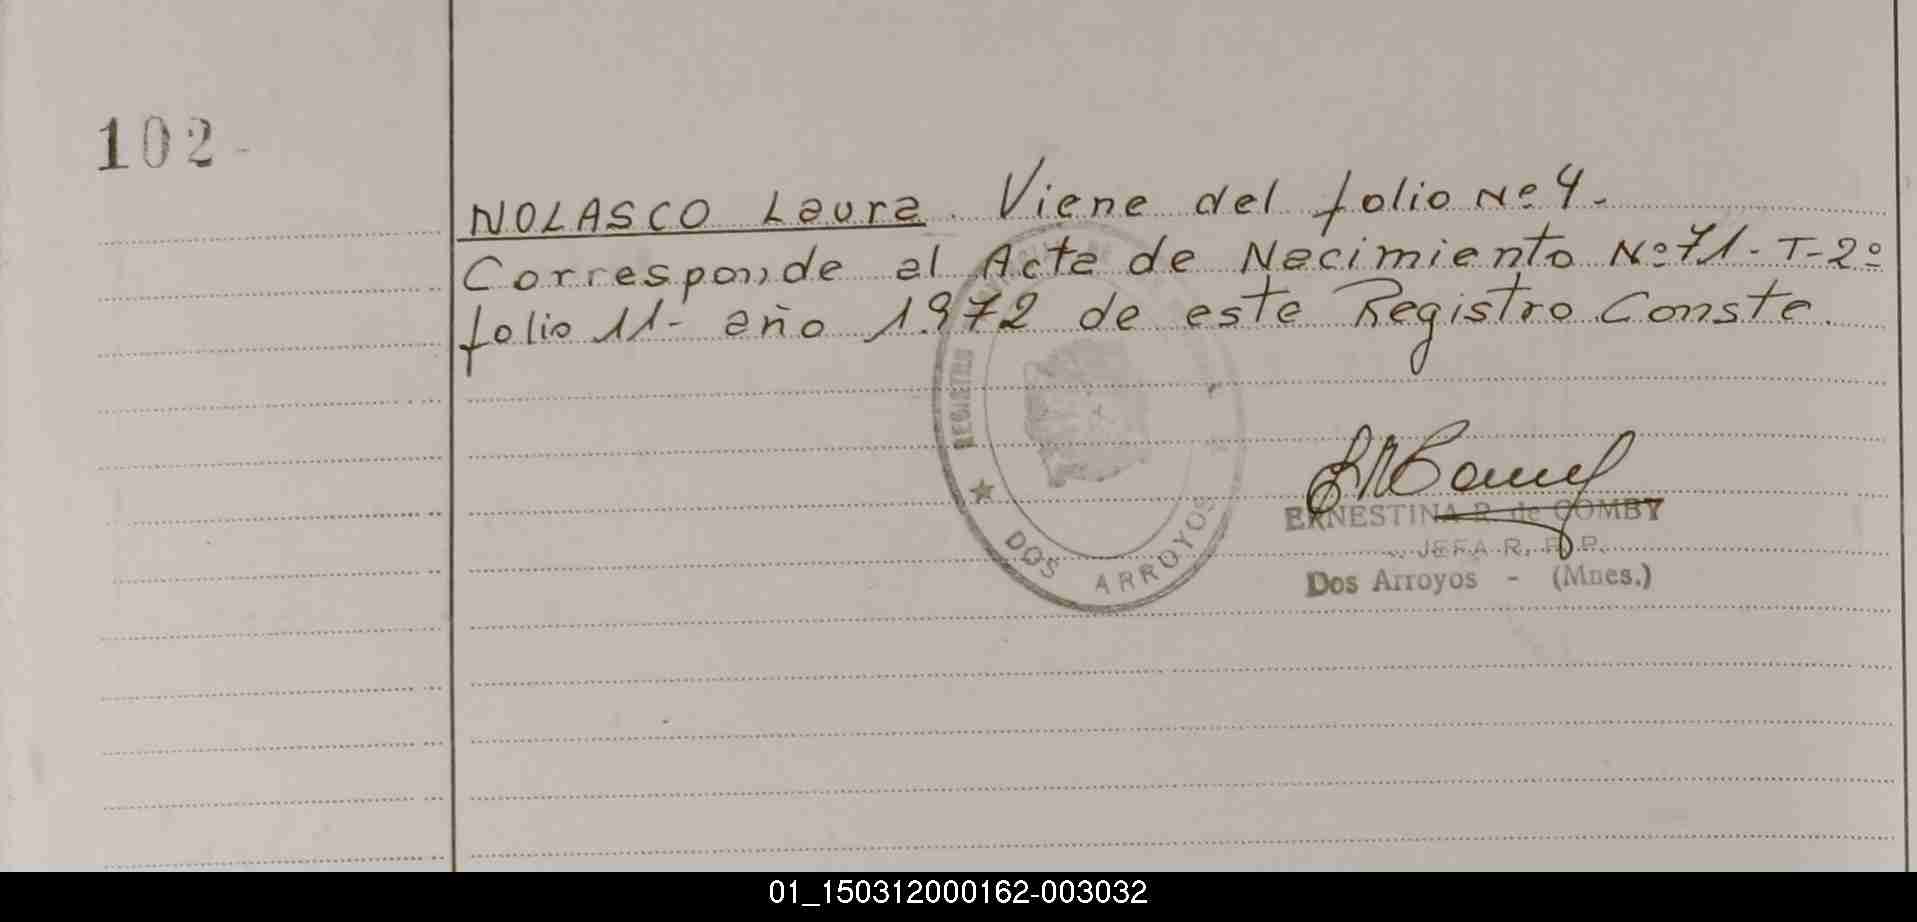 102-
NOLASCO Laura. Viene del folio Nº 4.
Corresponde al Acta de Nacimiento Nº 71-T-2º
folio 11- año 1972 de este Registro Conste.
REGISTRO
DOS ARROYOS
ERNESTINA R. de COMBY
JEFA R. P.
Dos Arroyos - (Mnes.)
01_150312000162-003032